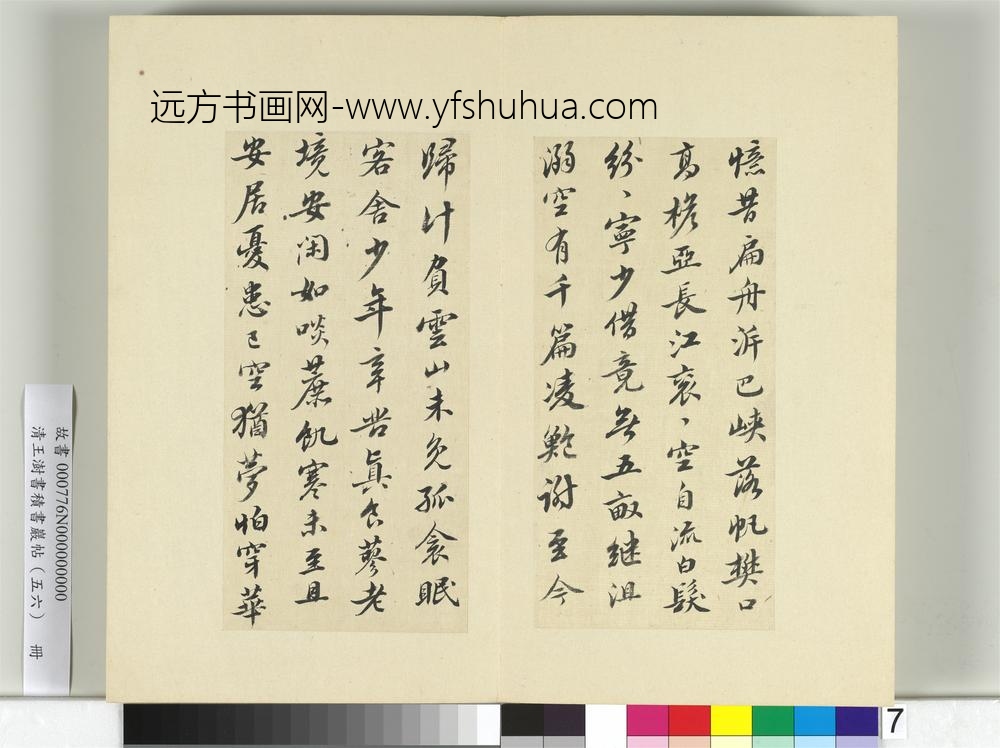 远方书画网-www.yfshuhua.com
憶昔扁舟泝巴峽落帆樊口
高桅亞長江衮、空自流白髮
紛、寧少借竟無五畝繼沮
溺空有千篇凌鮑謝至今
歸計負雲山未免孤衾眠
客舍少年辛苦真食蓼老
境安閑如啖蔗飢寒未至且
安居憂患已空猶夢怕穿華
故書 000776N000000000
清王澍書積書巖帖（五六） 冊
7